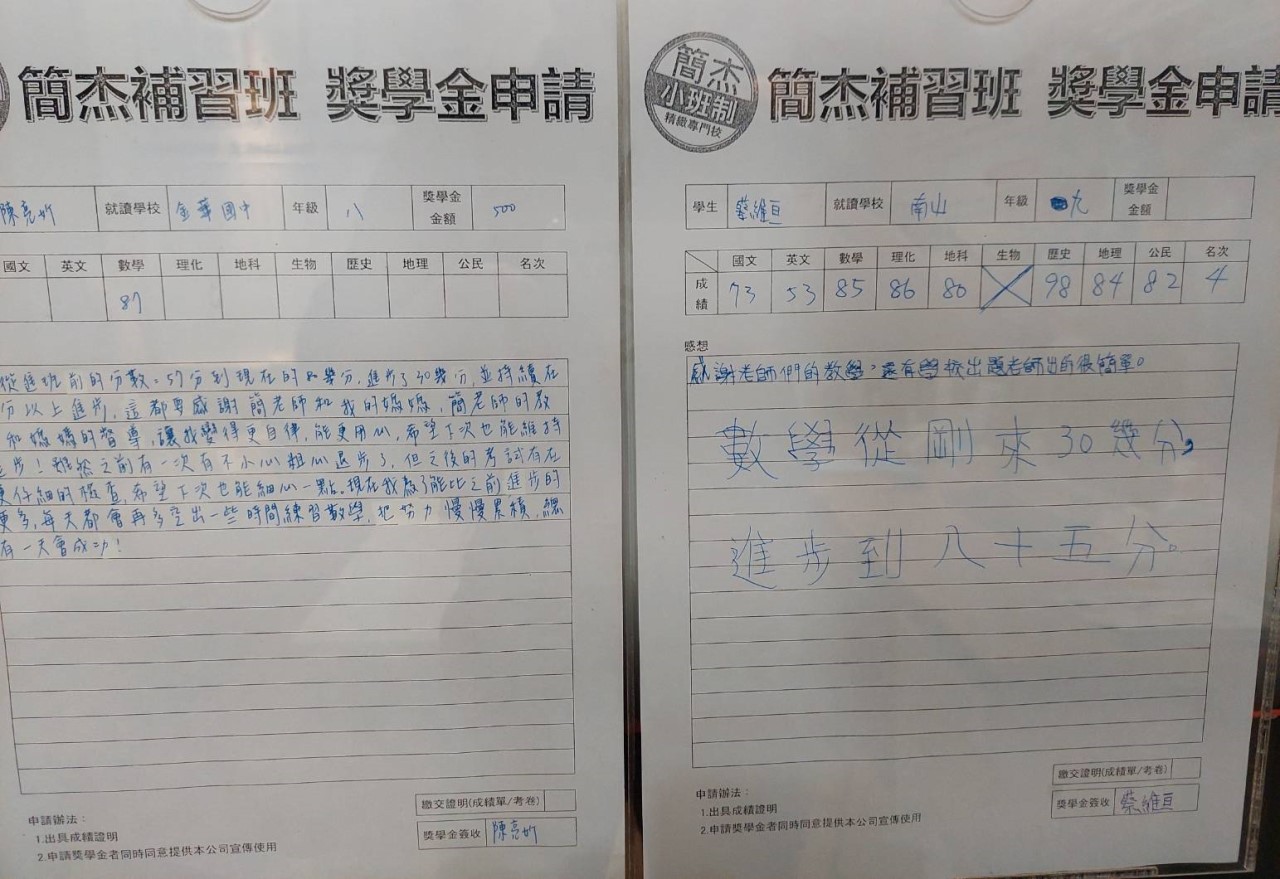 簡杰補習班 獎學金申請
陳亮妡 就讀學校 金華國中 年級 八 獎學金金額 500
國文 英文 數學 理化 地科 生物 歷史 地理 公民 名次
87
從進班前的分數。57分到現在的8幾分,進步了30幾分,並持續在
份以上進步,這都要感謝簡老師和我的媽媽,簡老師的教
和媽媽的督導,讓我變得更自律,能更用心,希望下次也能維持
進步!雖然之前有一次有不小心粗心退步了,但之後的考試有在
更仔細的檢查,希望下次也能細心一點。現在我為了能比之前進步的
更多,每天都會再多空出一些時間練習數學,把努力慢慢累積,總
有一天會成功!
繳交證明(成績單/考卷)
申請辦法:
1.出具成績證明
2.申請獎學金者同時同意提供本公司宣傳使用
獎學金簽收 陳亮妡
簡杰
小班制
精緻專門校
簡杰補習班 獎學金申請
學生 蔡維亘 就讀學校 南山 年級 九 獎學金金額
國文 英文 數學 理化 地科 生物 歷史 地理 公民 名次
成績 73 53 85 86 80 98 84 82 4
感想
感謝老師們的教學,還有學校出題老師出的很簡單。
數學從剛來30幾分,
進步到八十五分。
繳交證明(成績單/考卷)
申請辦法:
1.出具成績證明
2.申請獎學金者同時同意提供本公司宣傳使用
獎學金簽收 蔡維亘